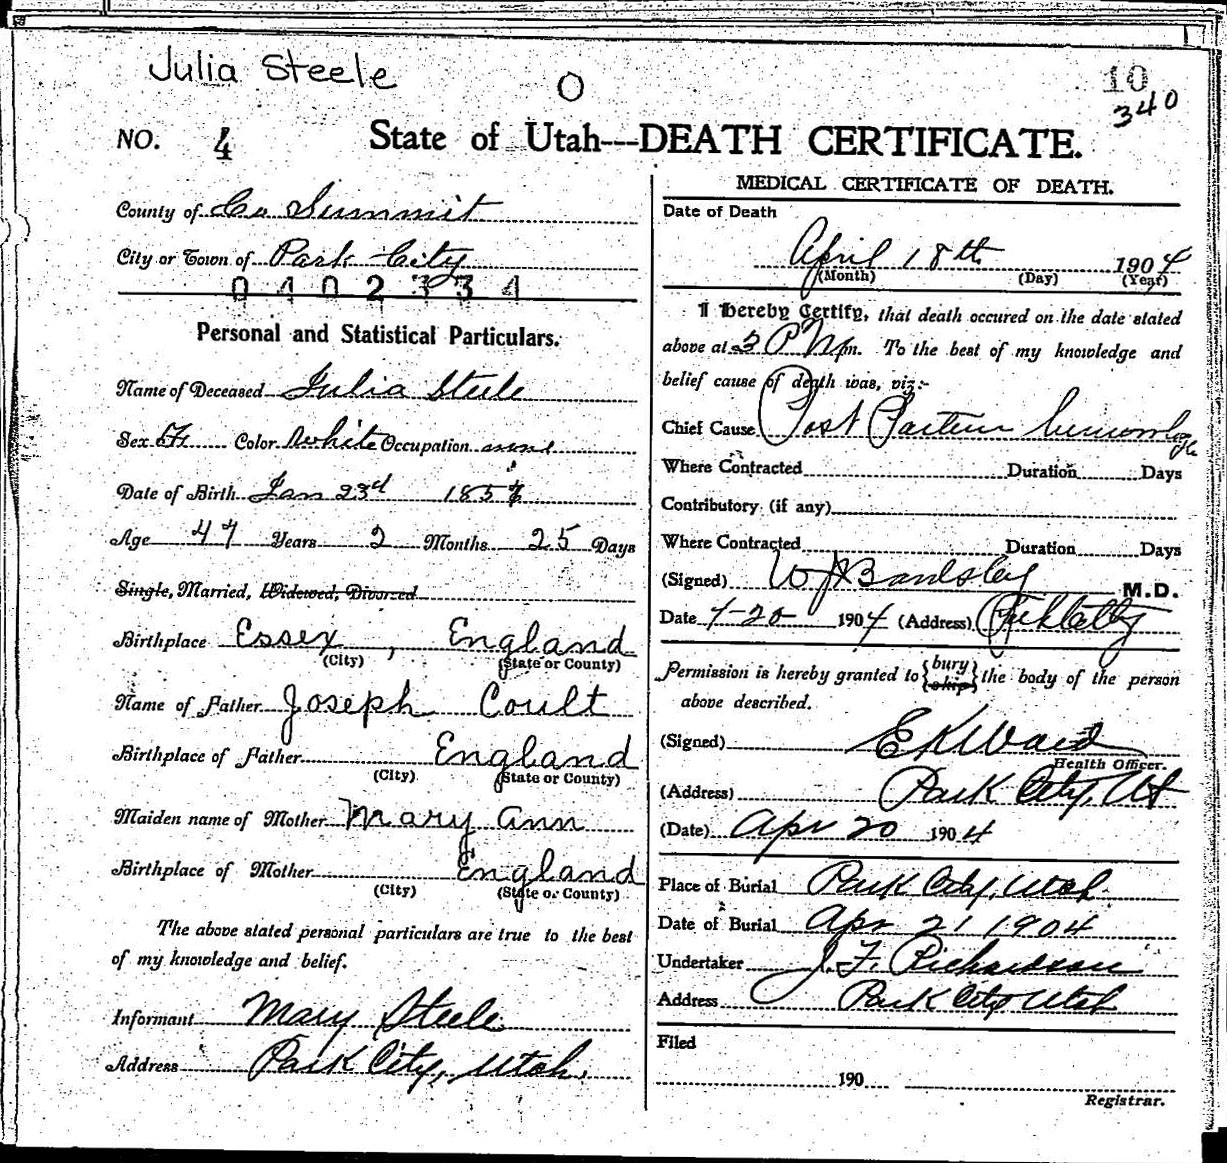 Julia Steele
O
10
340
NO. 4
State of Utah---DEATH CERTIFICATE.
County of Co Summit
City or Town of Park City
0402334
Personal and Statistical Particulars.
Name of Deceased Julia Steele
Sex F Color White Occupation none
Date of Birth Jan 23d 1857
Age 47 Years 2 Months 25 Days
Single, Married, Widowed, Divorced
Birthplace Essex, England
(City) (State or County)
Name of Father Joseph Coult
Birthplace of Father England
(City) (State or County)
Maiden name of Mother Mary Ann
Birthplace of Mother England
(City) (State or County)
The above stated personal particulars are true to the best
of my knowledge and belief.
Informant Mary Steele
Address Park City, Utah.
MEDICAL CERTIFICATE OF DEATH.
Date of Death
April 18th 1904
(Month) (Day) (Year)
I hereby Certify, that death occured on the date stated
above at 3 P M m. To the best of my knowledge and
belief cause of death was, viz:-
Chief Cause Post Partum hemorrhage
Where Contracted Duration Days
Contributory (if any)
Where Contracted Duration Days
(Signed) W J Bardsley M.D.
Date 4-20 1904 (Address) Park City
Permission is hereby granted to {bury
{ship} the body of the person
above described.
(Signed) E K Ward
Health Officer.
(Address) Park City, Ut
(Date) Apr 20 1904
Place of Burial Park City, Utah.
Date of Burial Apr 21 1904
Undertaker J. F. Richardson
Address Park City Utah
Filed
190
Registrar.